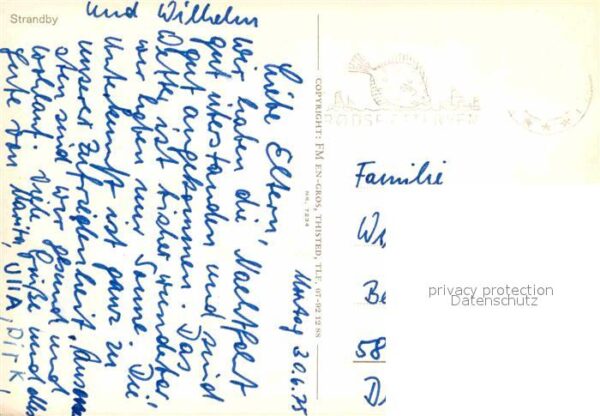 Strandby
Montag 30.6.75
Liebe Eltern,
wir haben die Nachtfahrt
gut überstanden und sind
gut angekommen. Das
Wetter ist bisher wunderbar
wir hatten nur Sonne. Die
Unterkunft ist ganz zu
unserer Zufriedenheit. Ansonsten
sind wir gesund und
wohlauf. Viele Grüße und alles
Gute von Marita, Ulla, Dirk,
und Wilhelm
COPYRIGHT: FM EN-GROS, THISTED, TLF. 07-92 12 88
NR. 7234
Familie
W
Be
58
D
privacy protection
Datenschutz